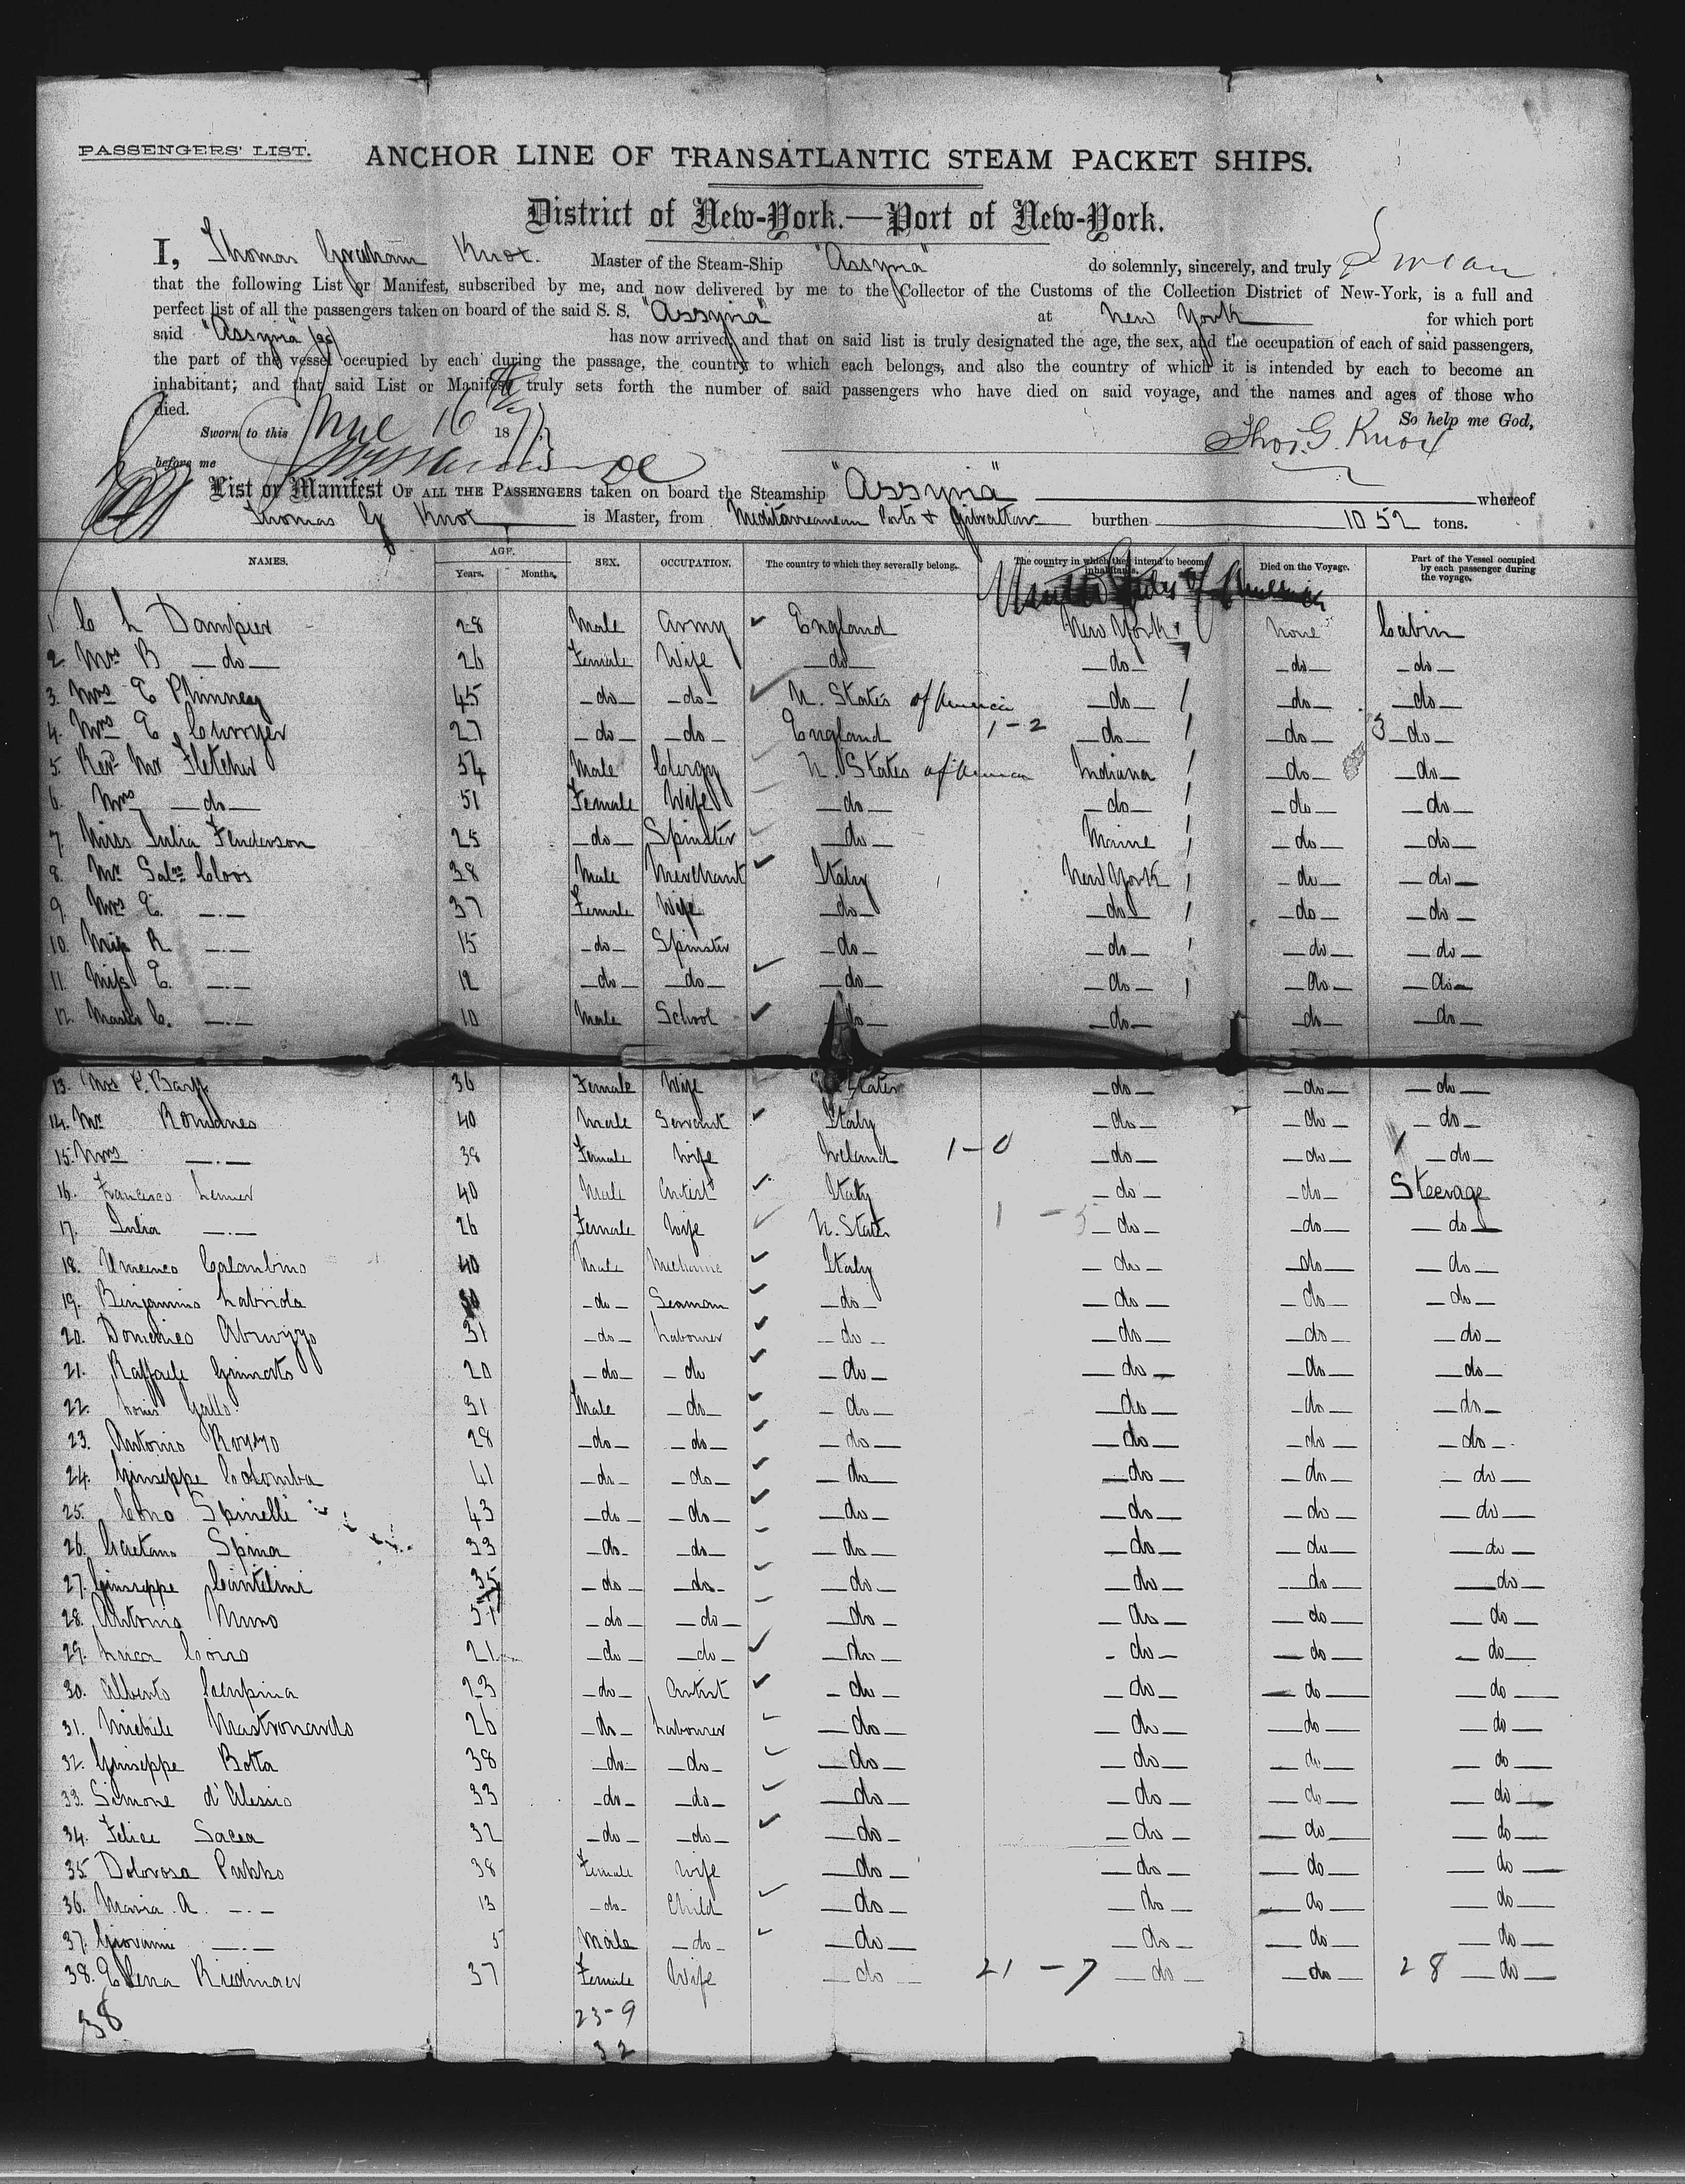 PASSENGERS' LIST.
ANCHOR LINE OF TRANSATLANTIC STEAM PACKET SHIPS.
District of New-York.—Port of New-York.
I, Thomas Graham Knox. Master of the Steam-Ship "Assyria" do solemnly, sincerely, and truly Swear
that the following List or Manifest, subscribed by me, and now delivered by me to the Collector of the Customs of the Collection District of New-York, is a full and
perfect list of all the passengers taken on board of the said S. S. "Assyria" at New York for which port
said "Assyria" has now arrived; and that on said list is truly designated the age, the sex, and the occupation of each of said passengers,
the part of the vessel occupied by each during the passage, the country to which each belongs, and also the country of which it is intended by each to become an
inhabitant; and that said List or Manifest truly sets forth the number of said passengers who have died on said voyage, and the names and ages of those who
died.
So help me God,
Sworn to this June 16th 1877
Thos. G. Knox
before me
List or Manifest OF ALL THE PASSENGERS taken on board the Steamship "Assyria" whereof
Thomas G Knox is Master, from Mediterranean Ports & Gibraltar burthen 1052 tons.
NAMES. AGE. Years. Months. SEX. OCCUPATION. The country to which they severally belong. The country in which they intend to become inhabitants. Died on the Voyage. Part of the Vessel occupied by each passenger during the voyage.
United States of America
1. C L Dampier 28 Male Army England New York None Cabin
2. Mrs B —do— 26 Female Wife —do— —do— —do— —do—
3. Mrs E Phinney 45 —do— —do— U. States of America —do— —do— —do—
4. Mrs E Curryer 27 —do— —do— England 1-2 —do— —do— 3 —do—
5. Revd Mr Fletcher 54 Male Clergy U. States of America Indiana —do— —do—
6. Mrs —do— 51 Female Wife —do— —do— —do— —do—
7. Miss Julia Fenderson 25 —do— Spinster —do— Maine —do— —do—
8. Mr Salre Cloos 38 Male Merchant Italy New York —do— —do—
9. Mrs E. —.— 37 Female Wife —do— —do— —do— —do—
10. Miss R —.— 15 —do— Spinster —do— —do— —do— —do—
11. Miss E. —.— 12 —do— —do— —do— —do— —do— —do—
12. Master C. —.— 10 Male School —do— —do— —do— —do—
13. Mrs P. Barff 36 Female Wife States —do— —do— —do—
14. Mr Romanes 40 Male Servant Italy —do— —do— —do—
15. Mrs —.— 38 Female Wife Ireland 1-0 —do— —do— 1 —do—
16. Francisco Lenner 40 Male Artist Italy —do— —do— Steerage
17. Julia —.— 26 Female Wife U. States 1-5 —do— —do— —do—
18. Calambino 40 Male Mechanic Italy —do— —do— —do—
19. Benjamino Labriola —do— Seaman —do— —do— —do— —do—
20. Domenico Abruzzo 31 —do— Labourer —do— —do— —do— —do—
21. Raffaele Grimato 20 —do— —do —do— —do— —do— —do—
22. Louis Gallo 31 Male —do— —do— —do— —do— —do—
23. Antonio 28 —do— —do— —do— —do— —do— —do—
24. Giuseppe Colomba 41 —do— —do— —do— —do— —do— —do—
25. Cono Spinelli 43 —do— —do— —do— —do— —do— —do—
26. Gaetano Spina 33 —do— —do— —do— —do— —do— —do—
27. Giuseppe Cantelmi 35 —do— —do— —do— —do— —do— —do—
28. Antonio Muro —do— —do— —do— —do— —do— —do—
29. Luca Coiro 21 —do— —do— —do— —do— —do— —do—
30. Alberto Carpina 23 —do— Artist —do— —do— —do— —do—
31. Michele Mastronardo 26 —do— Labourer —do— —do— —do— —do—
32. Giuseppe Botta 38 —do— —do— —do— —do— —do— —do—
33. Simone d'Alessio 33 —do— —do— —do— —do— —do— —do—
34. Felice Sacca 32 —do— —do— —do— —do— —do— —do—
35 Dolorosa Puppo 38 Female Wife —do— —do— —do— —do—
36. Maria. A. —.— 13 —do— Child —do— —do— —do— —do—
37. Giovanni —.— 5 Male —do— —do— —do— —do— —do—
38. Elena Riedmaer 37 Female Wife —do— 21-7 —do— —do— 28 —do—
38 23-9
32